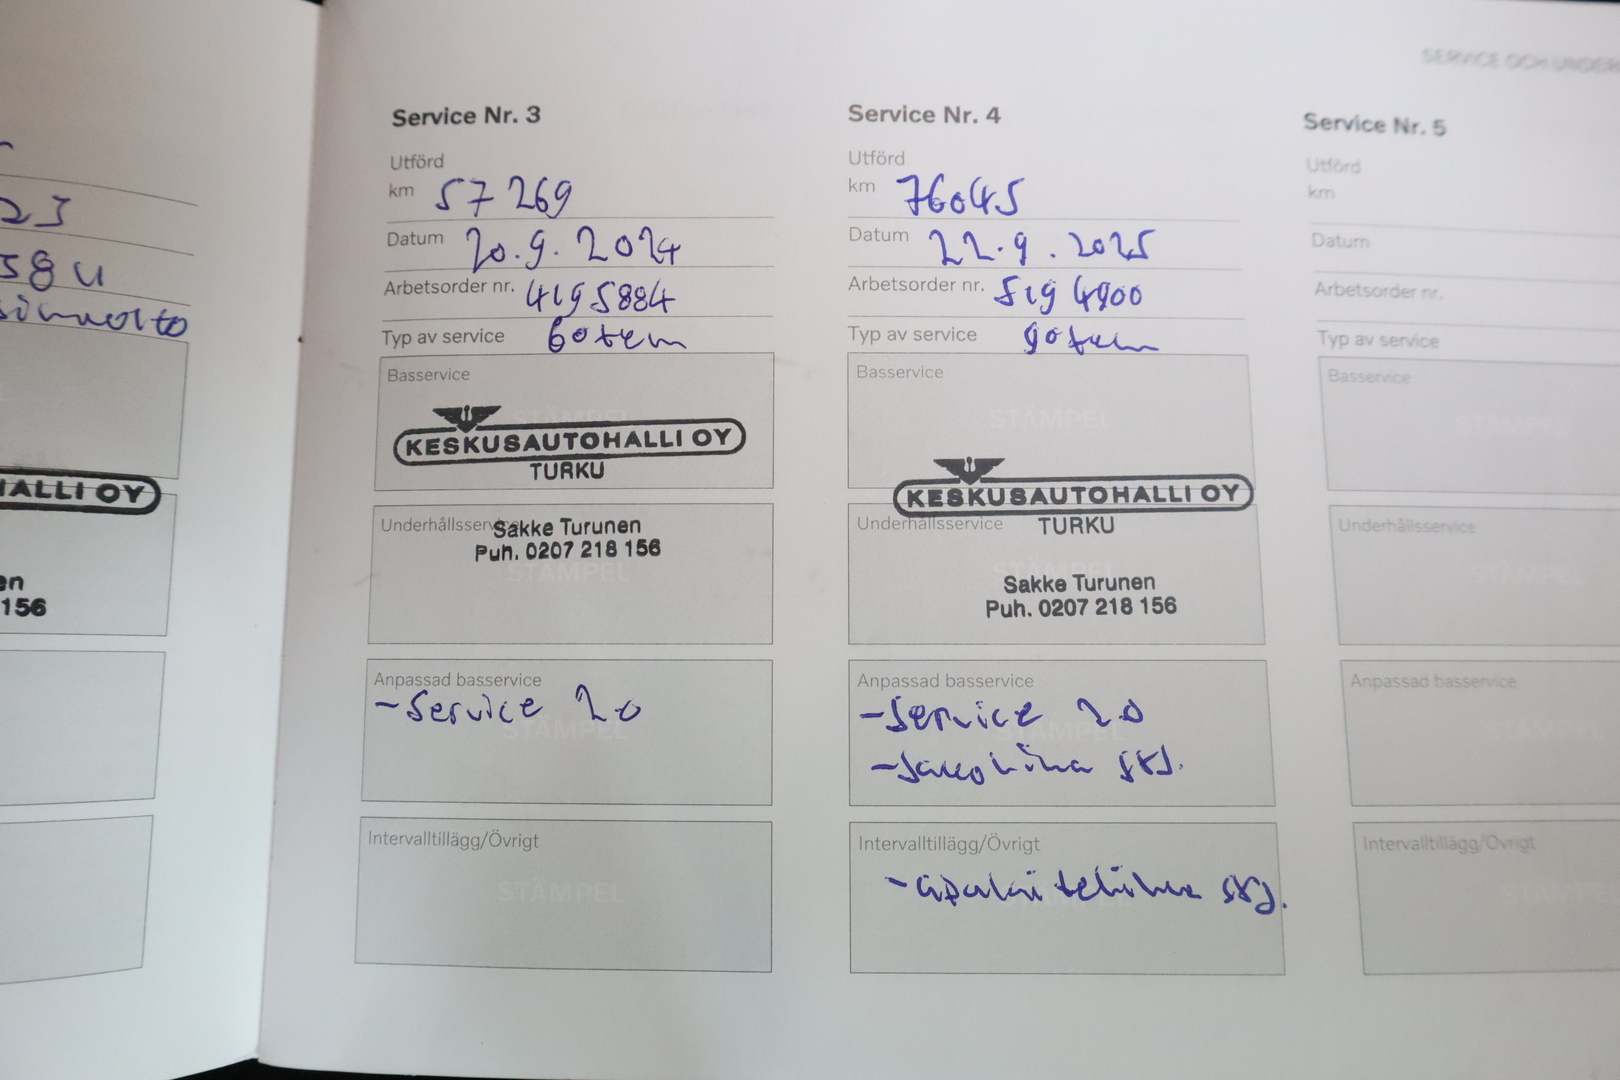 SERVICE OCH UNDER
23
58u
HALLI OY
en
156
Service Nr. 3
Utförd
km 57 269
Datum 20.9.2024
Arbetsorder nr. 4195884
Typ av service 60tkm
Basservice
STÄMPEL
KESKUSAUTOHALLI OY
TURKU
Underhållsservice
Sakke Turunen
Puh. 0207 218 156
STÄMPEL
Anpassad basservice
-Service 20
STÄMPEL
Intervalltillägg/Övrigt
STÄMPEL
Service Nr. 4
Utförd
km 76045
Datum 22.9.2025
Arbetsorder nr. 5194900
Typ av service 90tkm
Basservice
STÄMPEL
KESKUSAUTOHALLI OY
Underhållsservice
TURKU
STÄMPEL
Sakke Turunen
Puh. 0207 218 156
Anpassad basservice
-Service 20
STÄMPEL
Intervalltillägg/Övrigt
Service Nr. 5
Utförd
km
Datum
Arbetsorder nr.
Typ av service
Basservice
STÄMPEL
Underhållsservice
STÄMPEL
Anpassad basservice
STÄMPEL
Intervalltillägg/Övrigt
STÄMPE